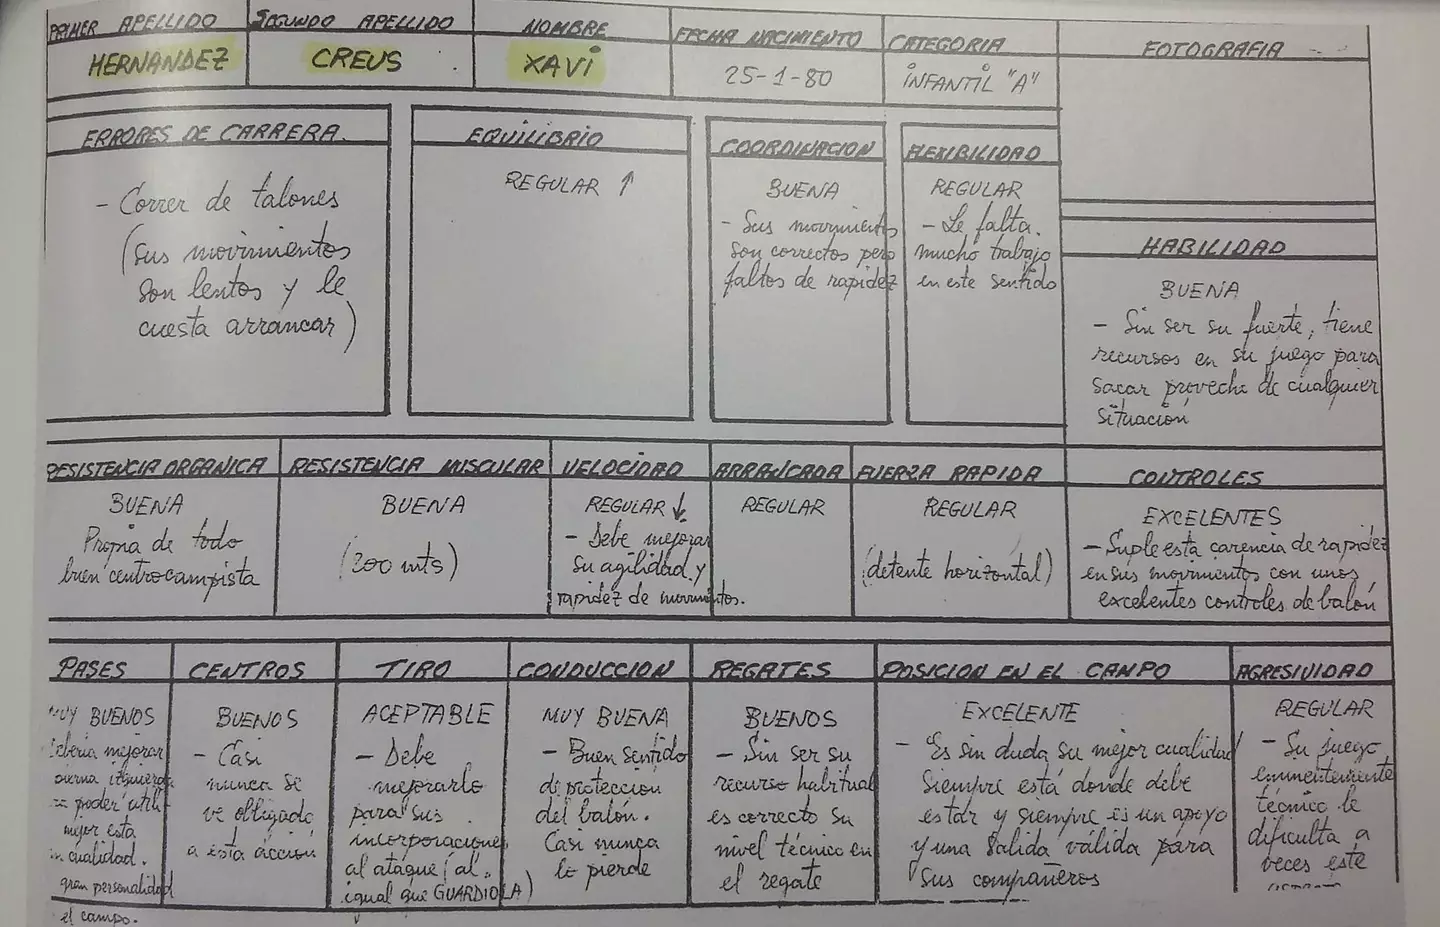 PRIMER APELLIDO
HERNANDEZ
SEGUNDO APELLIDO
CREUS
NOMBRE
XAVi
FECHA NACIMIENTO
25-1-80
CATEGORIA
iNFANTiL "A"
FOTOGRAFIA
ERRORES DE CARRERA.
- Correr de talones
(sus movimientos
son lentos y le
cuesta arrancar)
EQUILIBRIO
REGULAR ↑
COORDINACION
BUENA
- Sus movimientos
son correctos pero
faltos de rapidez
FLEXIBILIDAD
REGULAR
- Le falta
mucho trabajo
en este sentido
HABILIDAD
BUENA
- Sin ser su fuerte, tiene
recursos en su juego para
sacar provecho de cualquier
situación
RESISTENCIA ORGANICA
BUENA
Propia de todo
buen centrocampista
RESISTENCIA MUSCULAR
BUENA
(200 mts)
VELOCIDAD
REGULAR ↓
- Debe mejorar
su agilidad y
rapidez de movimientos.
ARRANCADA
REGULAR
FUERZA RAPIDA
REGULAR
(detente horizontal)
CONTROLES
EXCELENTES
- Suple esta carencia de rapidez
en sus movimientos con unos
excelentes controles de balón
PASES
MUY BUENOS
debería mejorar
pierna izquierda
poder
mejor esta
cualidad.
gran personalidad
el campo.
CENTROS
BUENOS
- Casi
nunca se
ve obligado
a esta acción
TIRO
ACEPTABLE
- Debe
mejorarlo
para sus
incorporaciones
al ataque (al
igual que GUARDIOLA)
CONDUCCION
MUY BUENA
- Buen sentido
de protección
del balón.
Casi nunca
lo pierde
REGATES
BUENOS
- Sin ser su
recurso habitual
es correcto su
nivel técnico en
el regate
POSICION EN EL CAMPO
EXCELENTE
- Es sin duda su mejor cualidad
Siempre está donde debe
estar y siempre es un apoyo
y una salida válida para
sus compañeros
AGRESIVIDAD
REGULAR
- Su juego
eminentemente
técnico le
dificulta a
veces este